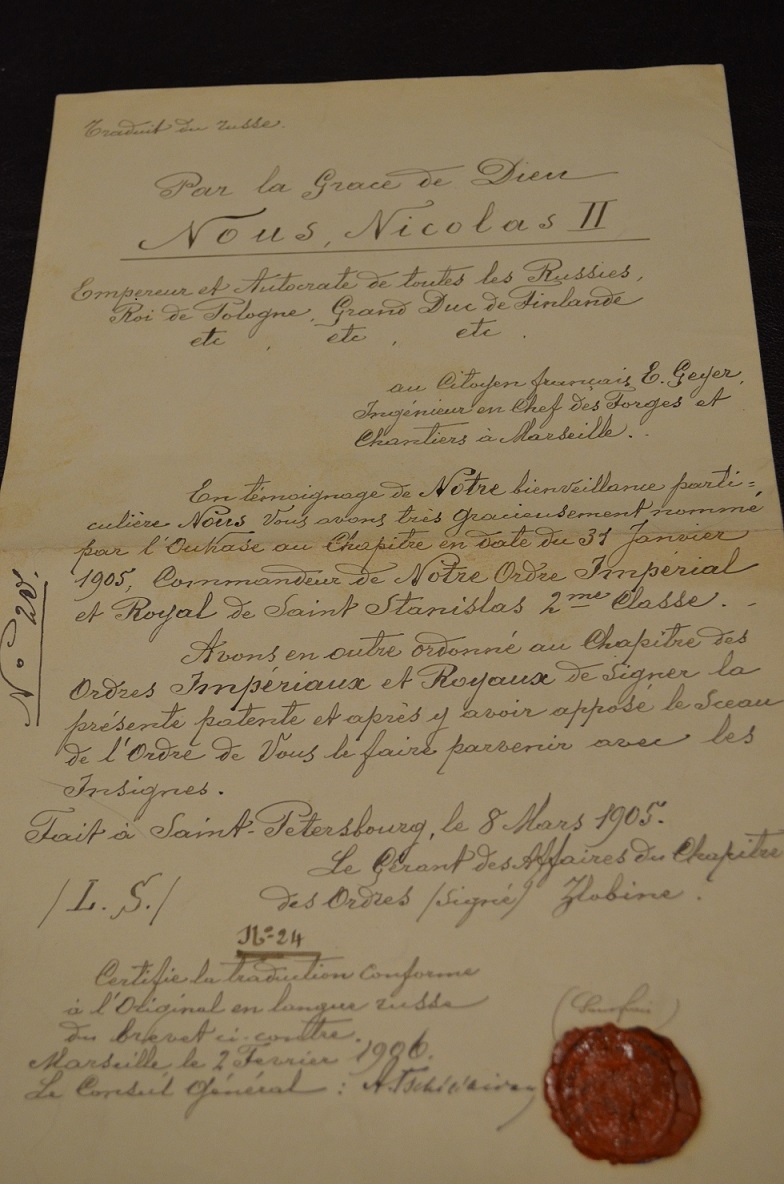 Traduit du russe.
Par la Grace de Dieu
Nous, Nicolas II
Empereur et Autocrate de toutes les Russies,
Roi de Pologne, Grand Duc de Finlande
etc , etc , etc .
au Citoyen français E. Geyer,
Ingénieur en Chef des Forges et
Chantiers à Marseille..
En témoignage de Notre bienveillance parti=
culière Nous Vous avons très gracieusement nommé
par l'Oukase au Chapitre en date du 31 Janvier
1905, Commandeur de Notre Ordre Impérial
et Royal de Saint Stanislas 2me Classe..
Avons en outre ordonné au Chapitre des
Ordres Impériaux et Royaux de signer la
présente patente et après y avoir apposé le Sceau
de l'Ordre de Vous le faire parvenir avec les
Insignes.
Fait à Saint-Petersbourg, le 8 Mars 1905.
Le Gérant des Affaires du Chapitre
/L. S./ des Ordres (signé) Zlobine.
No 20.
No 24
Certifie la traduction conforme
à l'Original en langue russe
du brevet ci-contre.
Marseille, le 2 Fevrier 1906.
Le Consul Général :